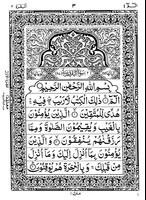 الٓمّٓ ١
٣
البقرة ٢
بِسْمِ اللهِ الرَّحْمٰنِ الرَّحِيْمِ
الٓمّٓ ذٰلِكَ الْكِتٰبُ لَا رَيْبَ فِيْهِ
هُدًى لِّلْمُتَّقِيْنَ الَّذِيْنَ يُؤْمِنُوْنَ
بِالْغَيْبِ وَيُقِيْمُوْنَ الصَّلٰوةَ وَمِمَّا
رَزَقْنٰهُمْ يُنْفِقُوْنَ وَالَّذِيْنَ يُؤْمِنُوْنَ
بِمَآ اُنْزِلَ اِلَيْكَ وَمَآ اُنْزِلَ
مِنْ قَبْلِكَ وَبِالْاٰخِرَةِ هُمْ يُوْقِنُوْنَ